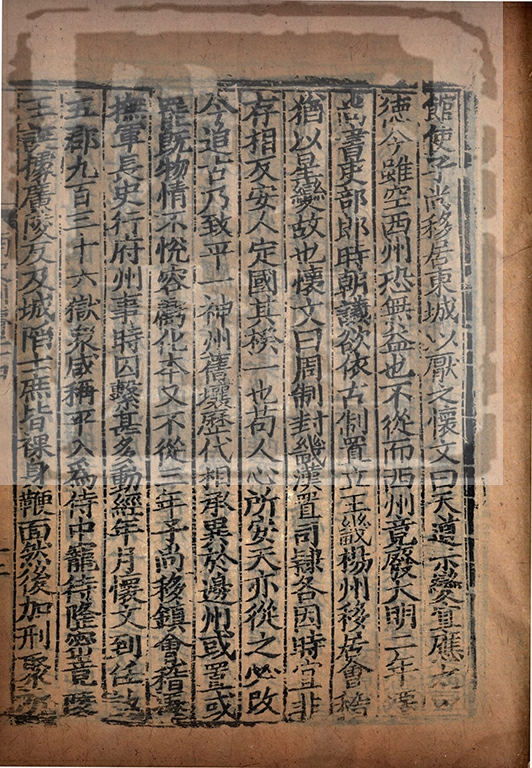 館使子尚移居東城以厭之懷文曰天道示變宜應之以
德今雖空西州恐無益也不從而西州竟廢大明二年遷
尚書吏部郎時朝議欲依古制置王畿楊州移居會稽
猶以星變故也懷文曰周制封畿漢置司隸各因時宜非
存相反安人定國其揆一也苟人心所安天亦從之必改
今追古乃致平一神州舊壤歷代相承異於邊州或置或
罷既物情不悅容虧化本又不從三年子尚移鎮會稽遷
撫軍長史行府州事時囚繫甚多動經年月懷文到任訊
五郡九百三十六獄衆咸稱平入爲侍中寵待隆密竟陵
王誕據廣陵反及城陷士庶皆裸身鞭面然後加刑聚